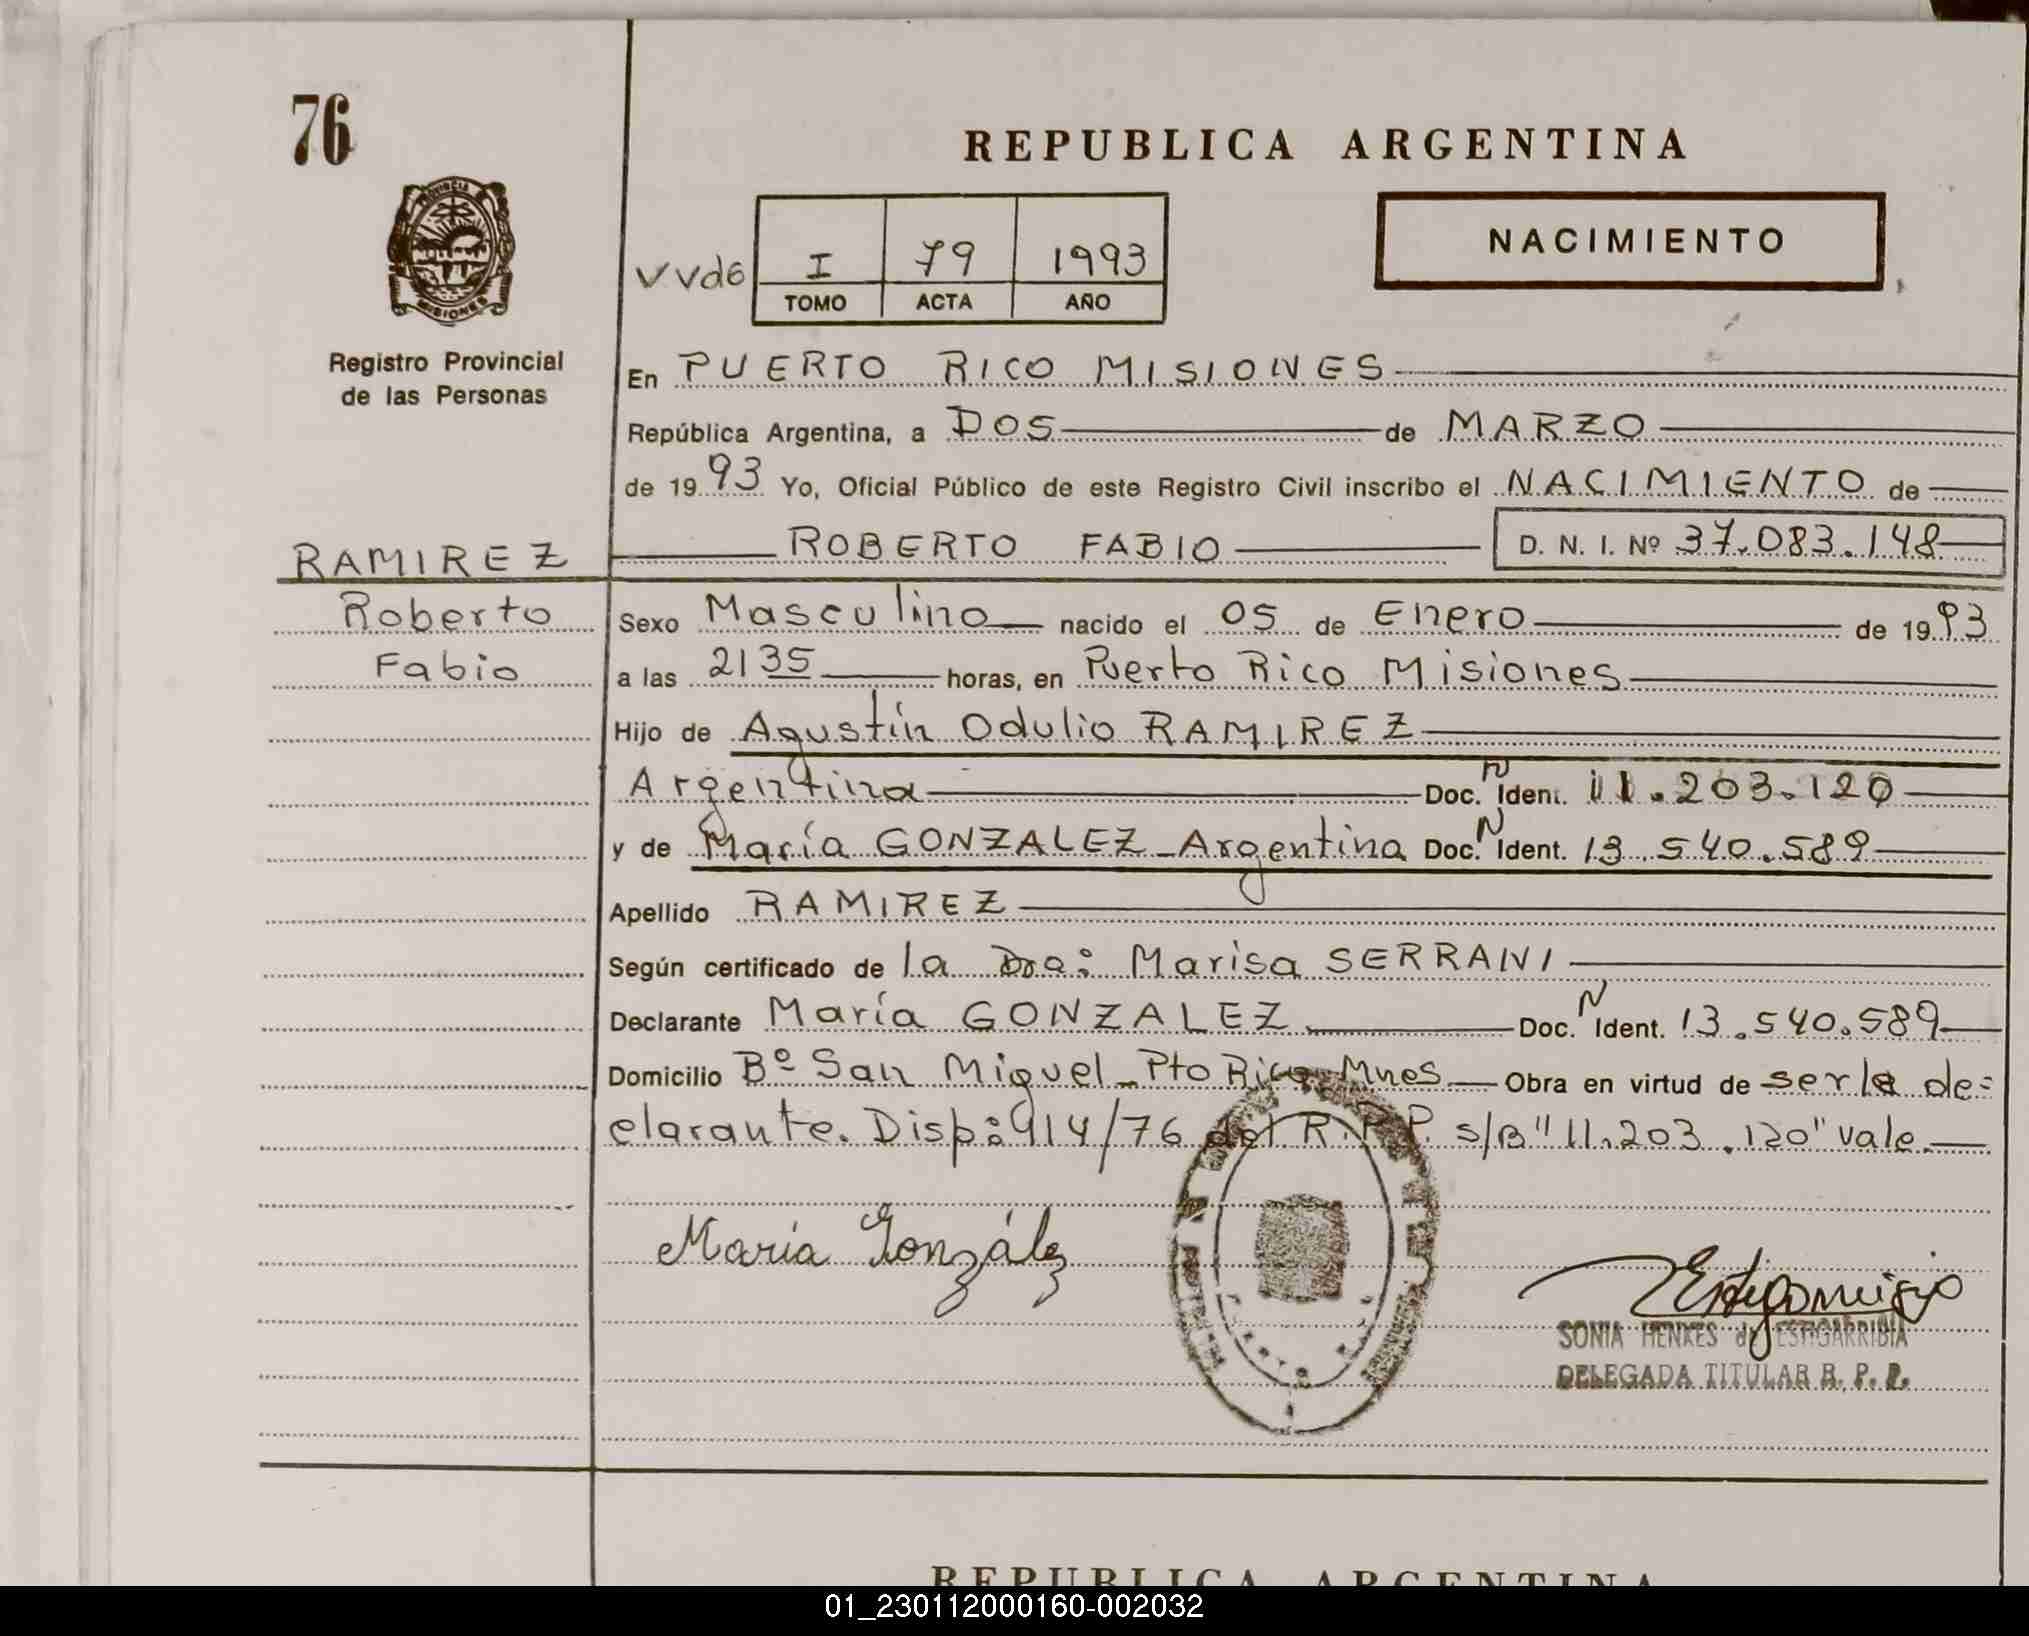 76
REPUBLICA ARGENTINA
NACIMIENTO
VVd6 I 79 1993
TOMO ACTA AÑO
PROVINCIA DE
MISIONES
Registro Provincial
de las Personas
En PUERTO RICO MISIONES
República Argentina, a DOS de MARZO
de 1993 Yo, Oficial Público de este Registro Civil inscribo el NACIMIENTO de
RAMIREZ ROBERTO FABIO D. N. I. Nº 37.083.148
Roberto Sexo Masculino nacido el 05 de Enero de 1993
Fabio a las 2135 horas, en Puerto Rico Misiones
Hijo de Agustín Odulio RAMIREZ
Argentina Doc. N Ident. 11.203.120
y de María GONZALEZ - Argentina Doc. N Ident. 13.540.589
Apellido RAMIREZ
Según certificado de la Dra: Marisa SERRANI
Declarante María GONZALEZ Doc. N Ident. 13.540.589
Domicilio Bº San Miguel - Pto Rico - Mnes Obra en virtud de ser la de=
clarante. Disp: 914/76 del R.P.P. s/B "11.203.120" vale
María González
SONIA HENXES de ESTIGARRIBIA
DELEGADA TITULAR R. P. P.
REPUBLICA ARGENTINA
01_230112000160-002032